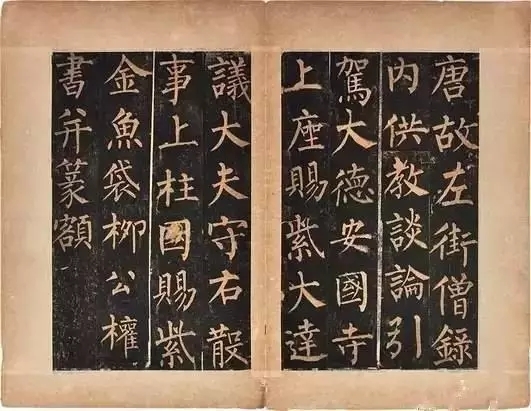 唐故左街僧錄
内供教談論引
駕大德安國寺
上座賜紫大達
議大夫守右散
事上柱國賜紫
金魚袋柳公權
書并篆額